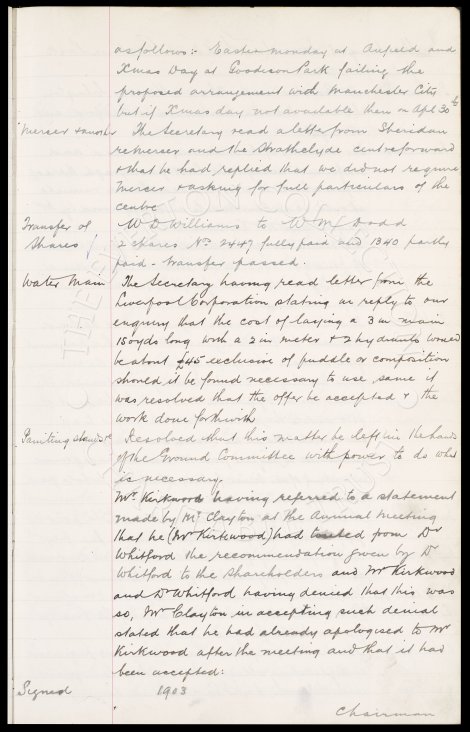 as follows:- Easter Monday at Anfield and
Xmas Day at Goodison Park failing the
proposed arrangement with Manchester City
but if Xmas day not available then on Apl 30th
Mercer & another The Secretary read a letter from Sheridan
re Mercer and the Strathclyde centre forward
& that he had replied that we did not require
Mercer & asking for full particulars of the
centre
Transfer of W D Williams to W M Dodd
Shares 2 shares No 2449 fully paid and 1340 partly
paid - transfer passed.
Water Main The Secretary having read letter from the
Liverpool Corporation stating in reply to our
enquiry that the cost of laying a 3 in main
150 yds long with a 2 in meter & 2 hydrants would
be about £45 exclusive of puddle or composition
should it be found necessary to use same it
was resolved that the offer be accepted & the
work done forthwith
Painting Resolved that this matter be left in the hands
of the Ground Committee with power to do what
is necessary.
Mr Kirkwood having referred to a statement
made by Mr Clayton at the Annual Meeting
that he (Mr Kirkwood) had touted from Dr
Whitford the recommendation given by Dr
Whitford to the Shareholders and Mr Kirkwood
and Dr Whitford having denied that this was
so, Mr Clayton in accepting such denial
stated that he had already apologised to Mr
Kirkwood after the meeting and that it had
been accepted:
Signed 1903
Chairman